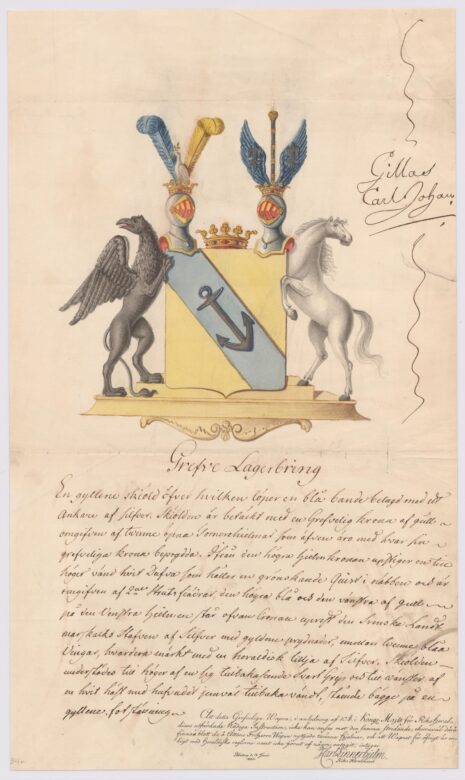 Gillas
Carl Johan
Grefve Lagerbring
En gyllene skiöld öfver hvilken löper en blå bande belagd med ett
Ankare af silfver. Skiölden är betäckt med en Grefvelig krona af gull
omgifven af tvenne öpna Tornerhielmar som äfven äro med hvar sin
grefveliga krona beprydda. Ifrån den högra Hielmkronan uppstiger en till
höger vänd hvit Dufva som håller en grönskande Qvist i näbben och är
omgifven af 2ne Struts fiädrar, den högra blå och den venstra af gull
på den Venstra Hielmen står ofvan Cronan upprest den Svenske Landt
marskalks Stafven af Silfver med gyldne prydnader, emellan tvenne blåa
Vingar, hvardera märkt med en heraldisk lilja af Silfver. Skiölden
understödes till höger af en sig tillbakaseende Svart Grip och till venster af
en hvit häst med hufvudet jemväl tillbaka vändt, stående bägge på en
gyllene fot ställning